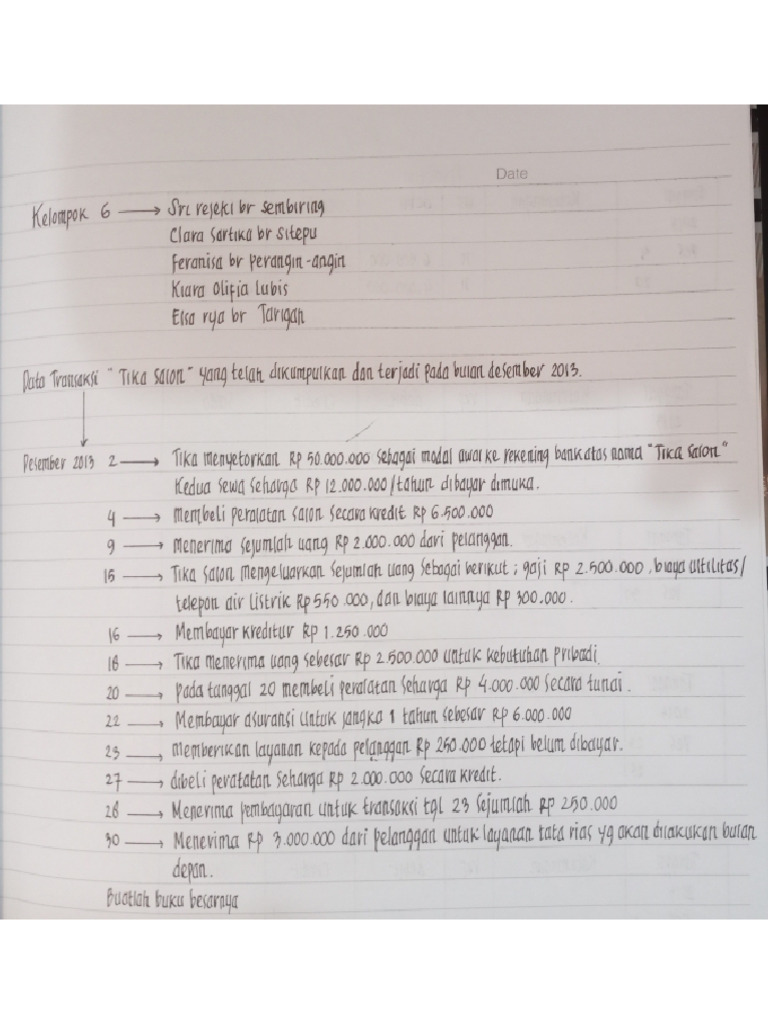 Date
Kelompok 6 → Sri rejeki br sembiring
Clara Sartika br Sitepu
Feranisa br perangin-angin
Kiara Olifia Lubis
Elsa rya br Tarigan
Data Transaksi "Tika Salon" yang telah dikumpulkan dan terjadi pada bulan desember 2013.
Desember 2013 2 → Tika menyetorkan Rp 50.000.000 sebagai modal awal ke rekening bank atas nama "Tika Salon"
Kedua sewa seharga Rp 12.000.000/tahun dibayar dimuka.
4 → membeli peralatan salon secara kredit Rp 6.500.000
9 → menerima sejumlah uang Rp 2.000.000 dari pelanggan.
15 → Tika salon mengeluarkan sejumlah uang sebagai berikut ; gaji Rp 2.500.000, biaya utilitas/
telepon air listrik Rp 550.000, dan biaya lainnya Rp 300.000.
16 → Membayar kreditur Rp 1.250.000
18 → Tika menerima uang sebesar Rp 2.500.000 untuk kebutuhan pribadi.
20 → pada tanggal 20 membeli peralatan seharga Rp 4.000.000 secara tunai.
22 → Membayar asuransi untuk jangka 1 tahun sebesar Rp 6.000.000
23 → memberikan layanan kepada pelanggan Rp 250.000 tetapi belum dibayar.
27 → dibeli peratatan seharga Rp 2.000.000 secara kredit.
28 → Menerima pembagaran untuk transaksi tgl 23 sejumlah Rp 250.000
30 → Menerima Rp 3.000.000 dari pelanggan untuk layanan tata rias yg akan dilakukan bulan
depan.
Buatlah buku besarnya